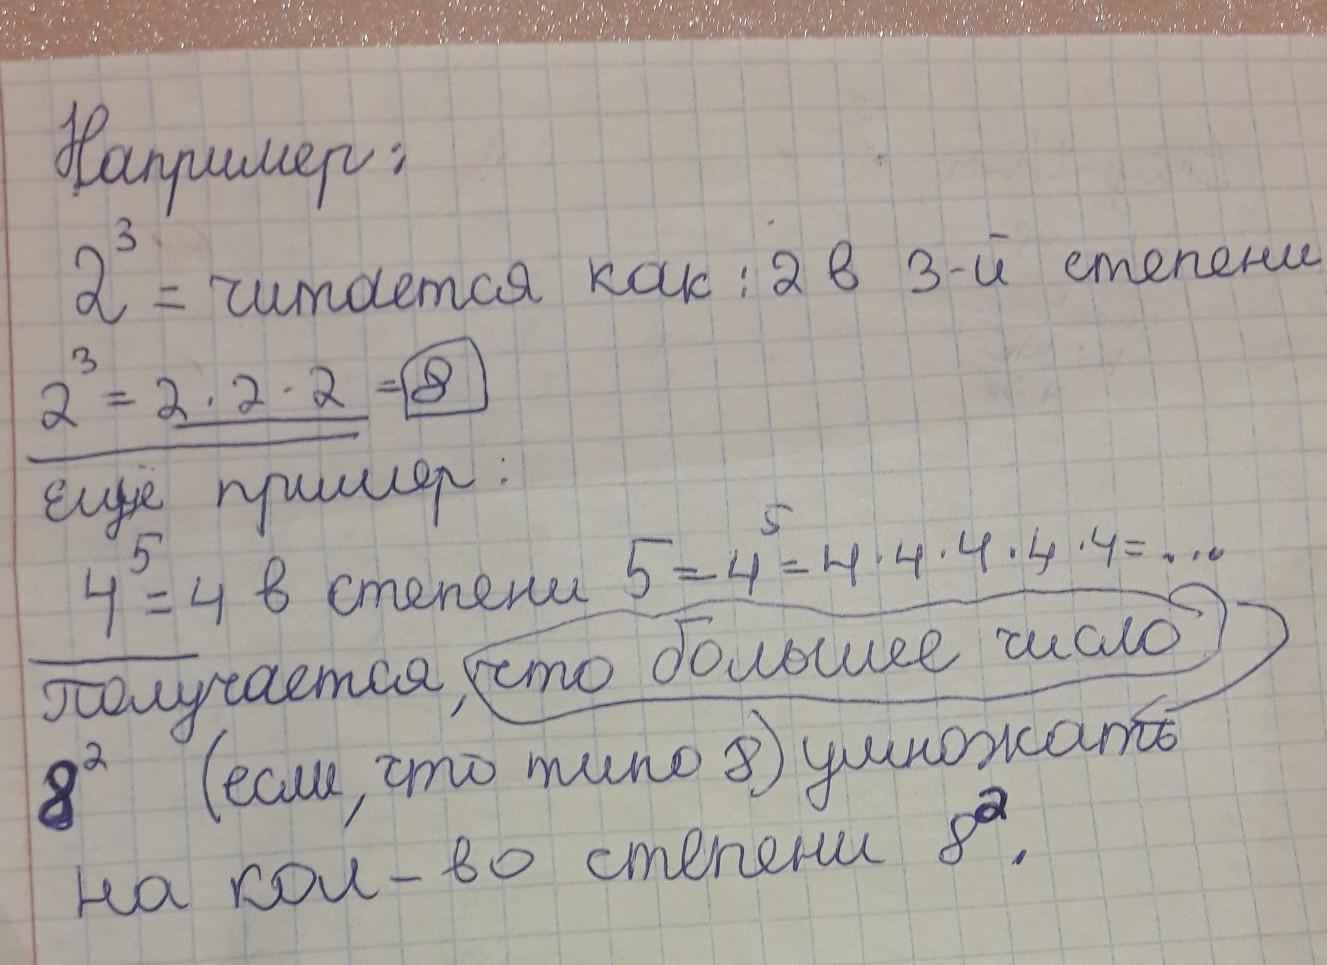 Например:
2³ = читается как: 2 в 3-й степени
2³ = 2 · 2 · 2 = 8
ещё пример:
4⁵ = 4 в степени 5 = 4⁵ = 4 · 4 · 4 · 4 · 4 = ...
Получается, что большее число
8² (если, что типо 8) умножать
на кол-во степени 8².